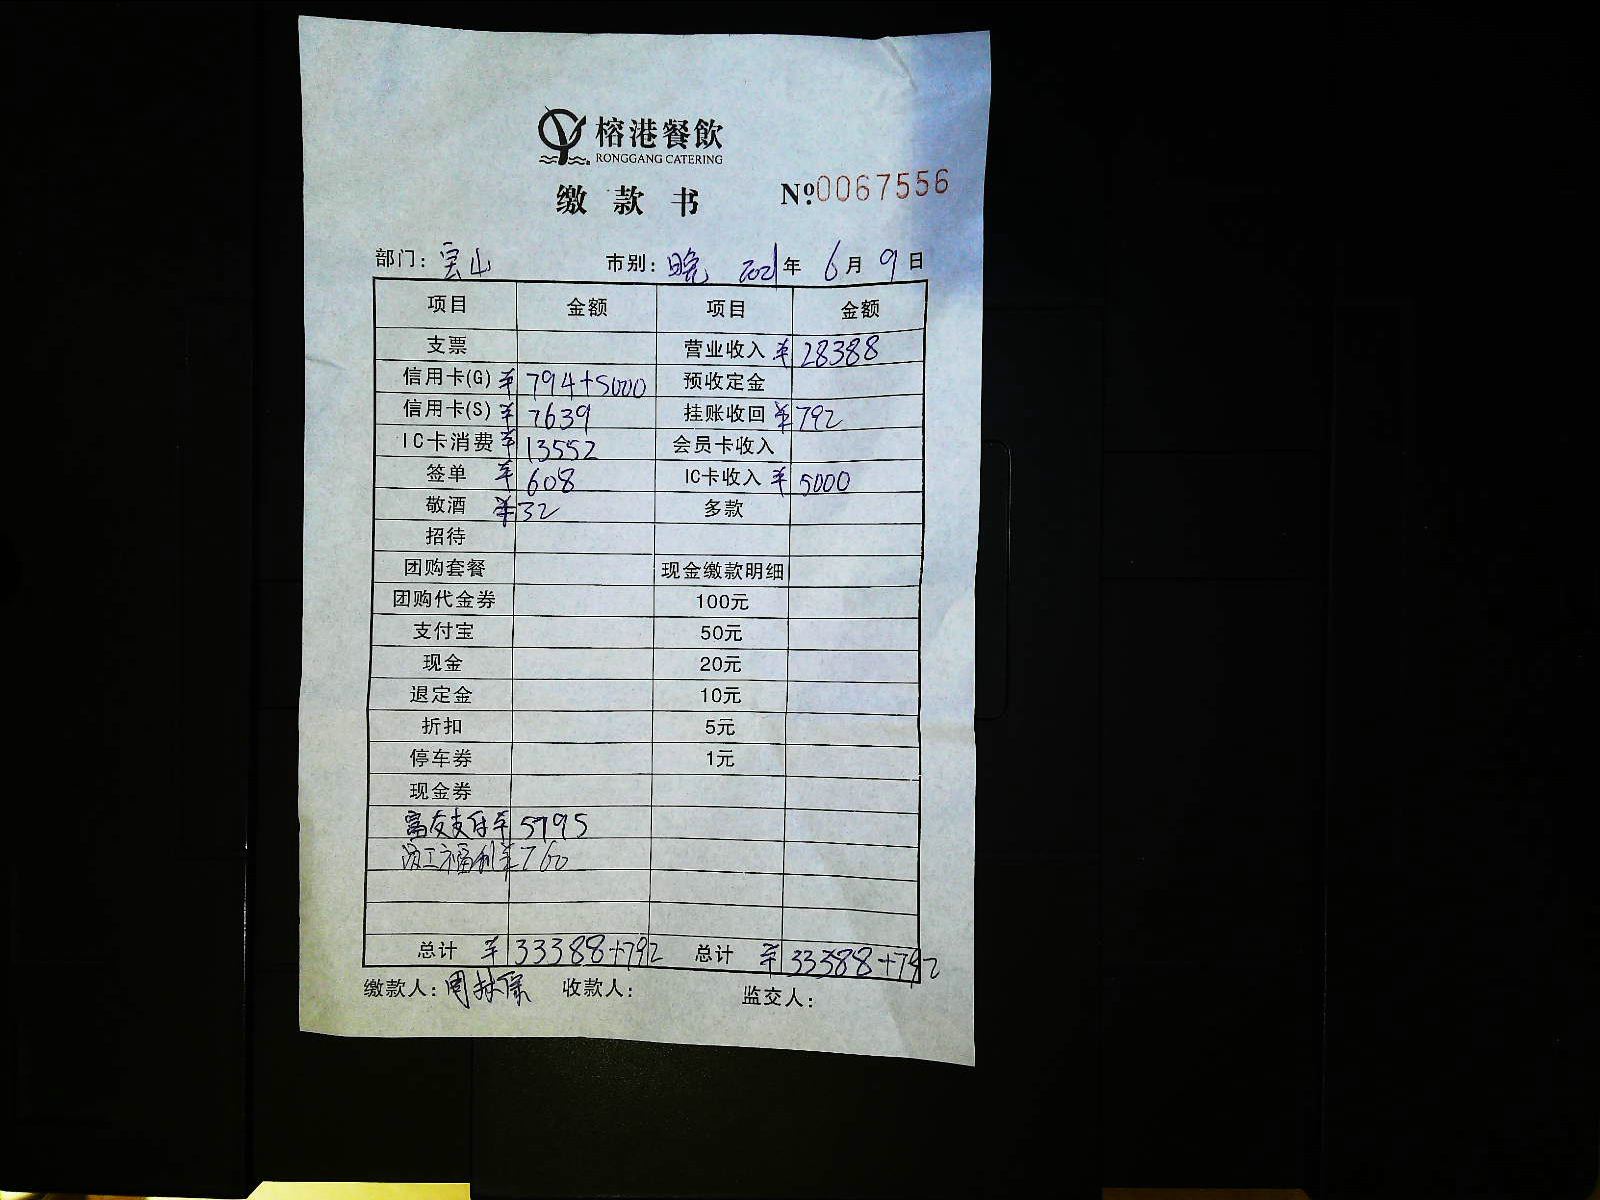 榕港餐飲
RONGGANG CATERING
缴款书 №0067556
部门：宝山 市别：晚 2021年 6月 9日
项目 金额 项目 金额
支票 营业收入 ¥28388
信用卡(G) ¥794+5000 预收定金
信用卡(S) ¥7639 挂账收回 ¥792
IC卡消费 ¥13552 会员卡收入
签单 ¥608 IC卡收入 ¥5000
敬酒 ¥32 多款
招待
团购套餐 现金缴款明细
团购代金券 100元
支付宝 50元
现金 20元
退定金 10元
折扣 5元
停车券 1元
现金券
富友支付 ¥5795
员工福利 ¥760
总计 ¥33388+792 总计 ¥33388+792
缴款人：周 收款人： 监交人：